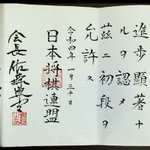 進歩顕著ナ
ルヲ認メ
茲ニ初段ヲ
允許ス
令和四年一月三十日
日本将棋連盟
会長佐藤康光